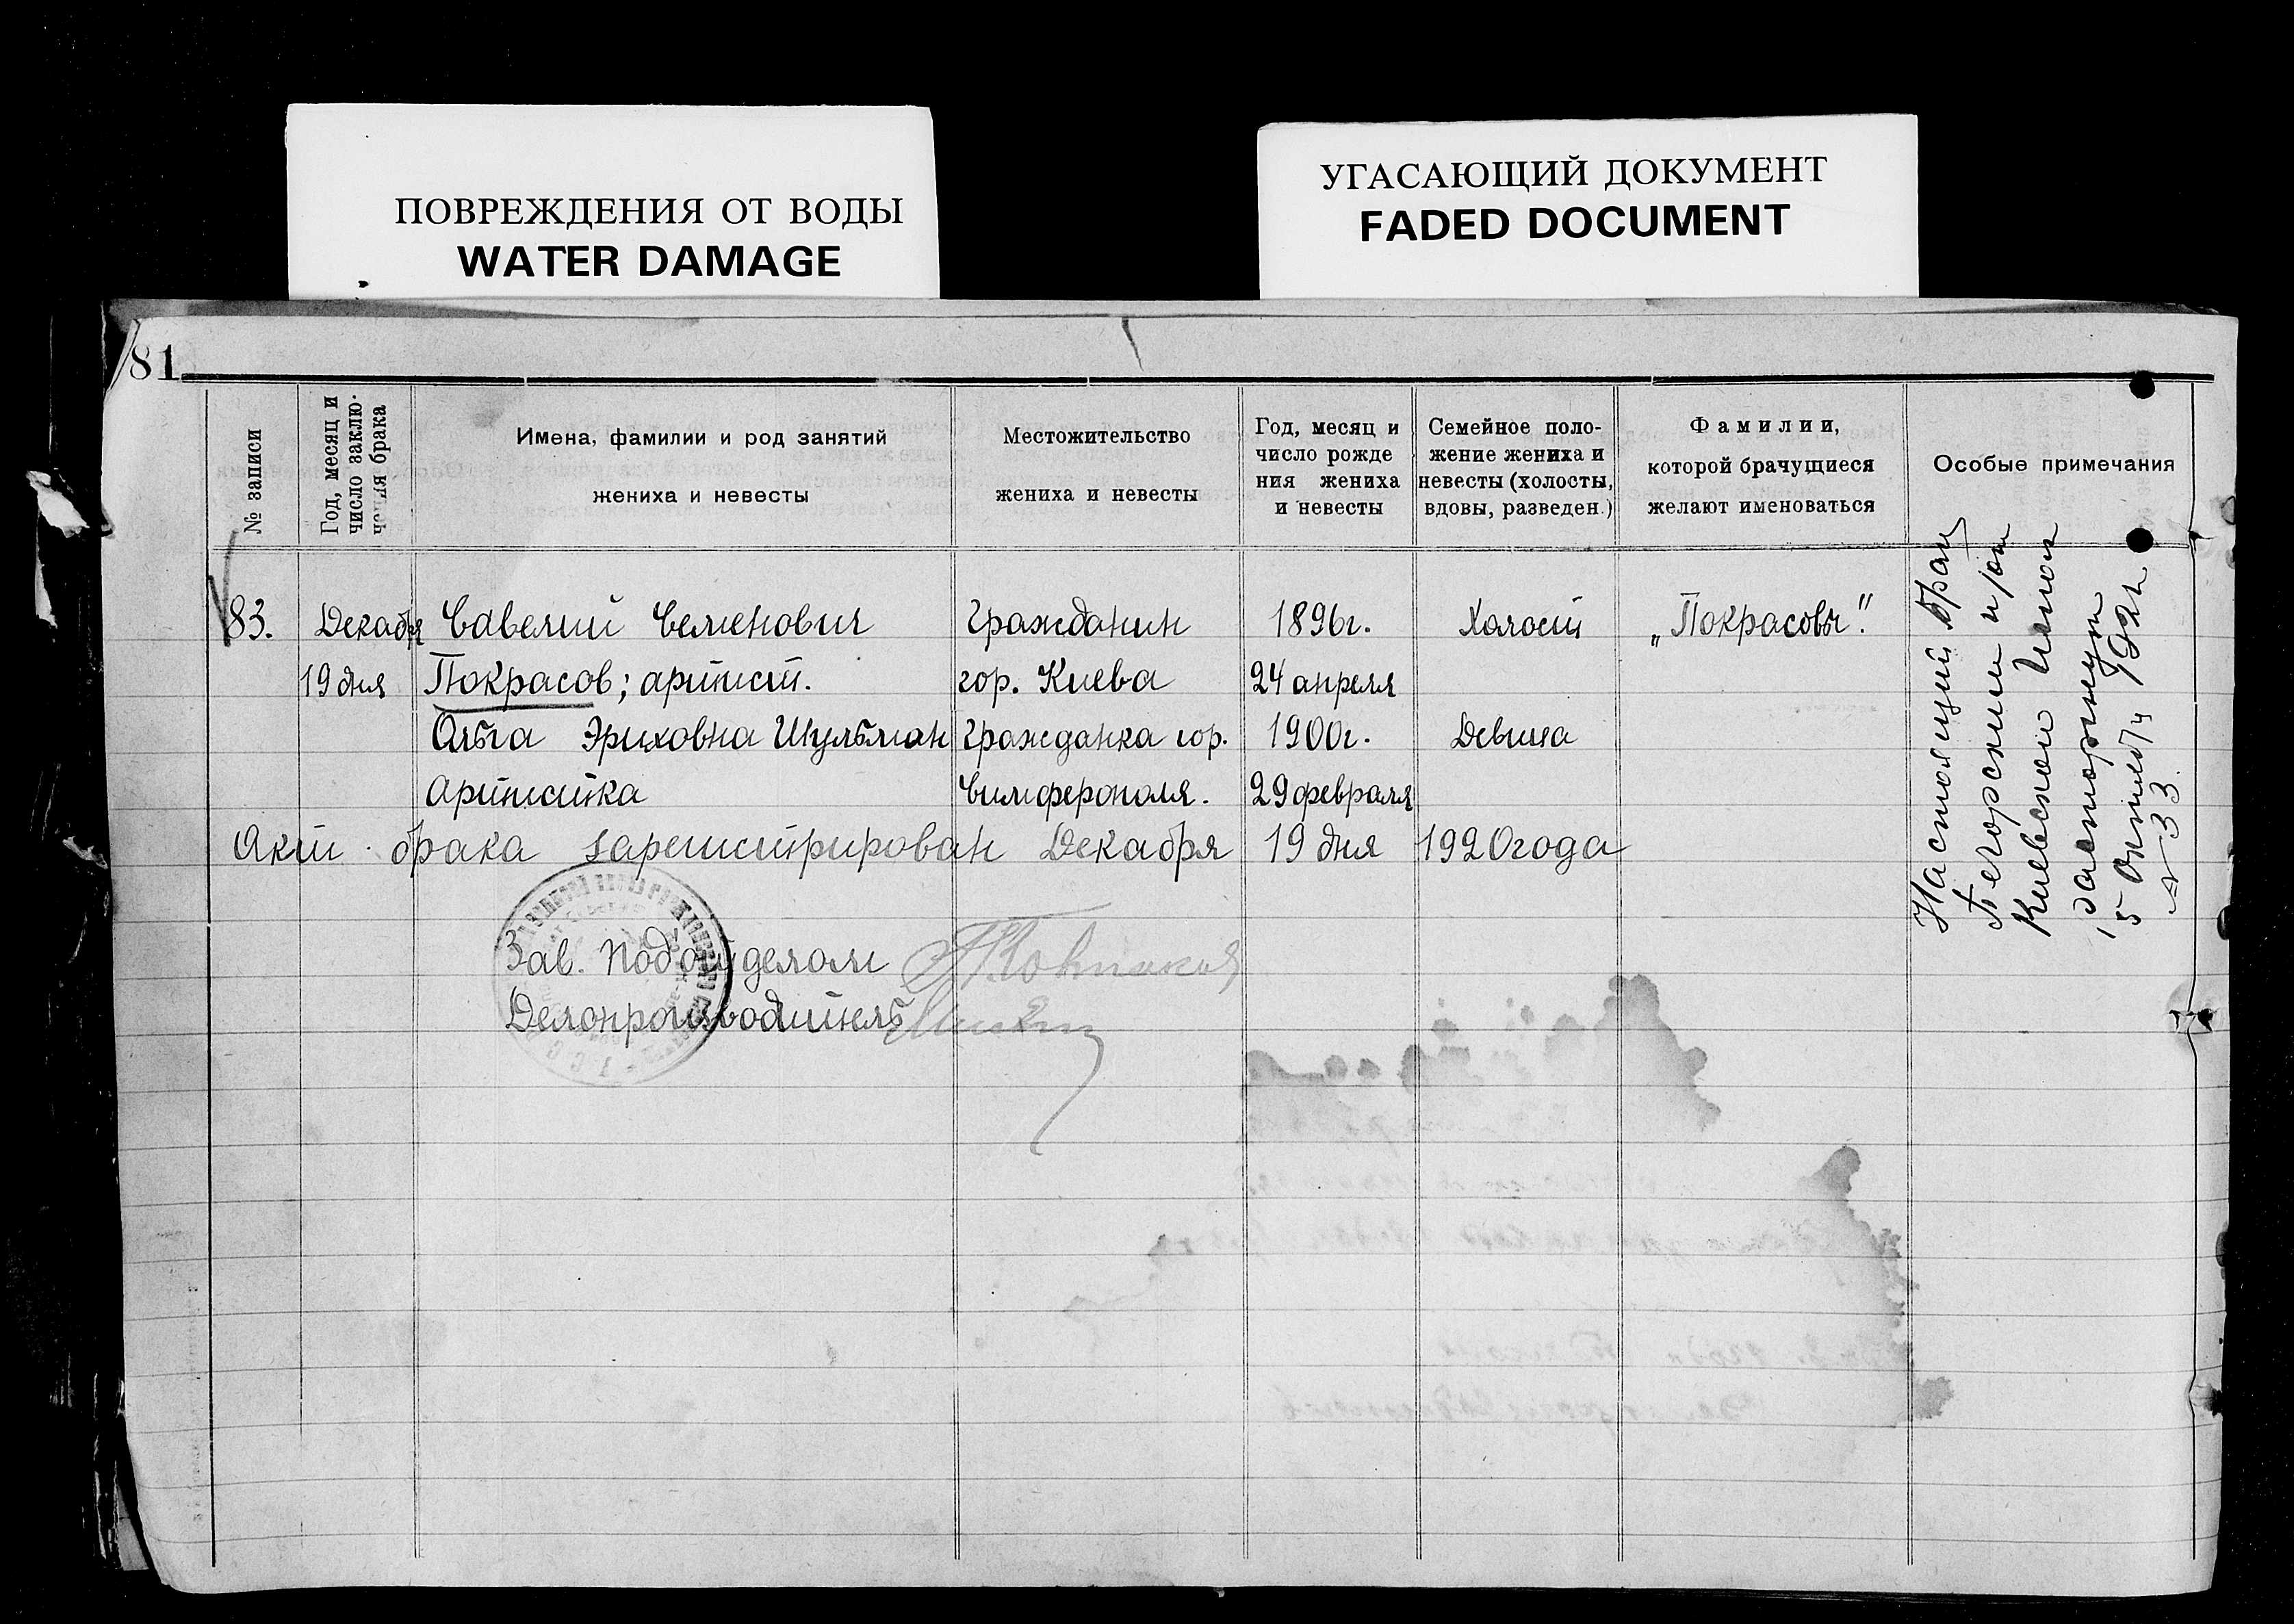 ПОВРЕЖДЕНИЯ ОТ ВОДЫ
WATER DAMAGE
УГАСАЮЩИЙ ДОКУМЕНТ
FADED DOCUMENT
81
№ записи
Год, месяц и
число заклю-
чения брака
Имена, фамилии и род занятий
жениха и невесты
Местожительство
жениха и невесты
Год, месяц и
число рожде
ния жениха
и невесты
Семейное поло-
жение жениха и
невесты (холосты,
вдовы, разведен.)
Фамилии,
которой брачущиеся
желают именоваться
Особые примечания
83. Декабря Савелий Семенович Гражданин 1896г. Холост „Покрасовы".
19 дня Покрасов; артист. гор. Киева 24 апреля
Ольга Эриховна Шульман Гражданка гор. 1900г. Девица
Артистка Симферополя. 29 февраля
Акт брака зарегистрирован Декабря 19 дня 1920 года
Зав. Подотделом
Делопроизводитель
Настоящий брак
Печорским
Киевской
расторгнут
5
№ 33.